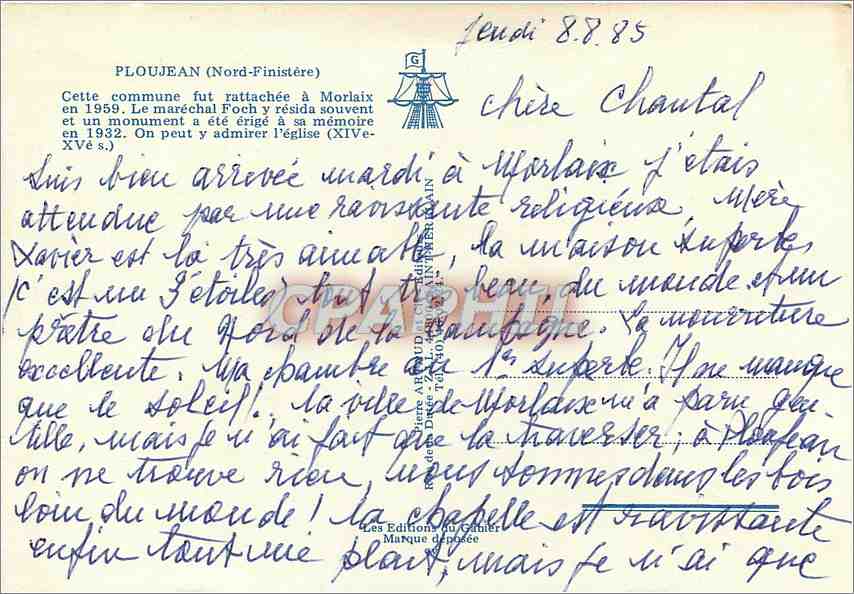 Jeudi 8.8.85
PLOUJEAN (Nord-Finistère)
Cette commune fut rattachée à Morlaix
en 1959. Le maréchal Foch y résida souvent
et un monument a été érigé à sa mémoire
en 1932. On peut y admirer l'église (XIVe-
XVè s.)
G
chère Chantal
suis bien arrivée mardi à Morlaix j'étais
attendue par une ravissante religieux, Mère
Xavier est là très aimable, la maison superbe
(c'est un 3 étoiles) tout très beau, du monde et un
prêtre du Nord de la Campagne. La nourriture
excellente. Ma chambre au 1er superbe. Il ne manque
que le soleil! la ville de Morlaix m'a paru gen-
tille, mais je n'ai fait que la traverser; à Ploujean
on ne trouve rien, nous sommes dans les bois
loin du monde! la chapelle est ravissante
enfin tout me plait, mais je n'ai que
Pierre ARTAUD et Cie Editeurs
Rue de la Dutée - Z.I.L. 44 SAINT-HERBLAIN
Tél. (40)
Les Editions du Gabier
Marque déposée
CPARHTI